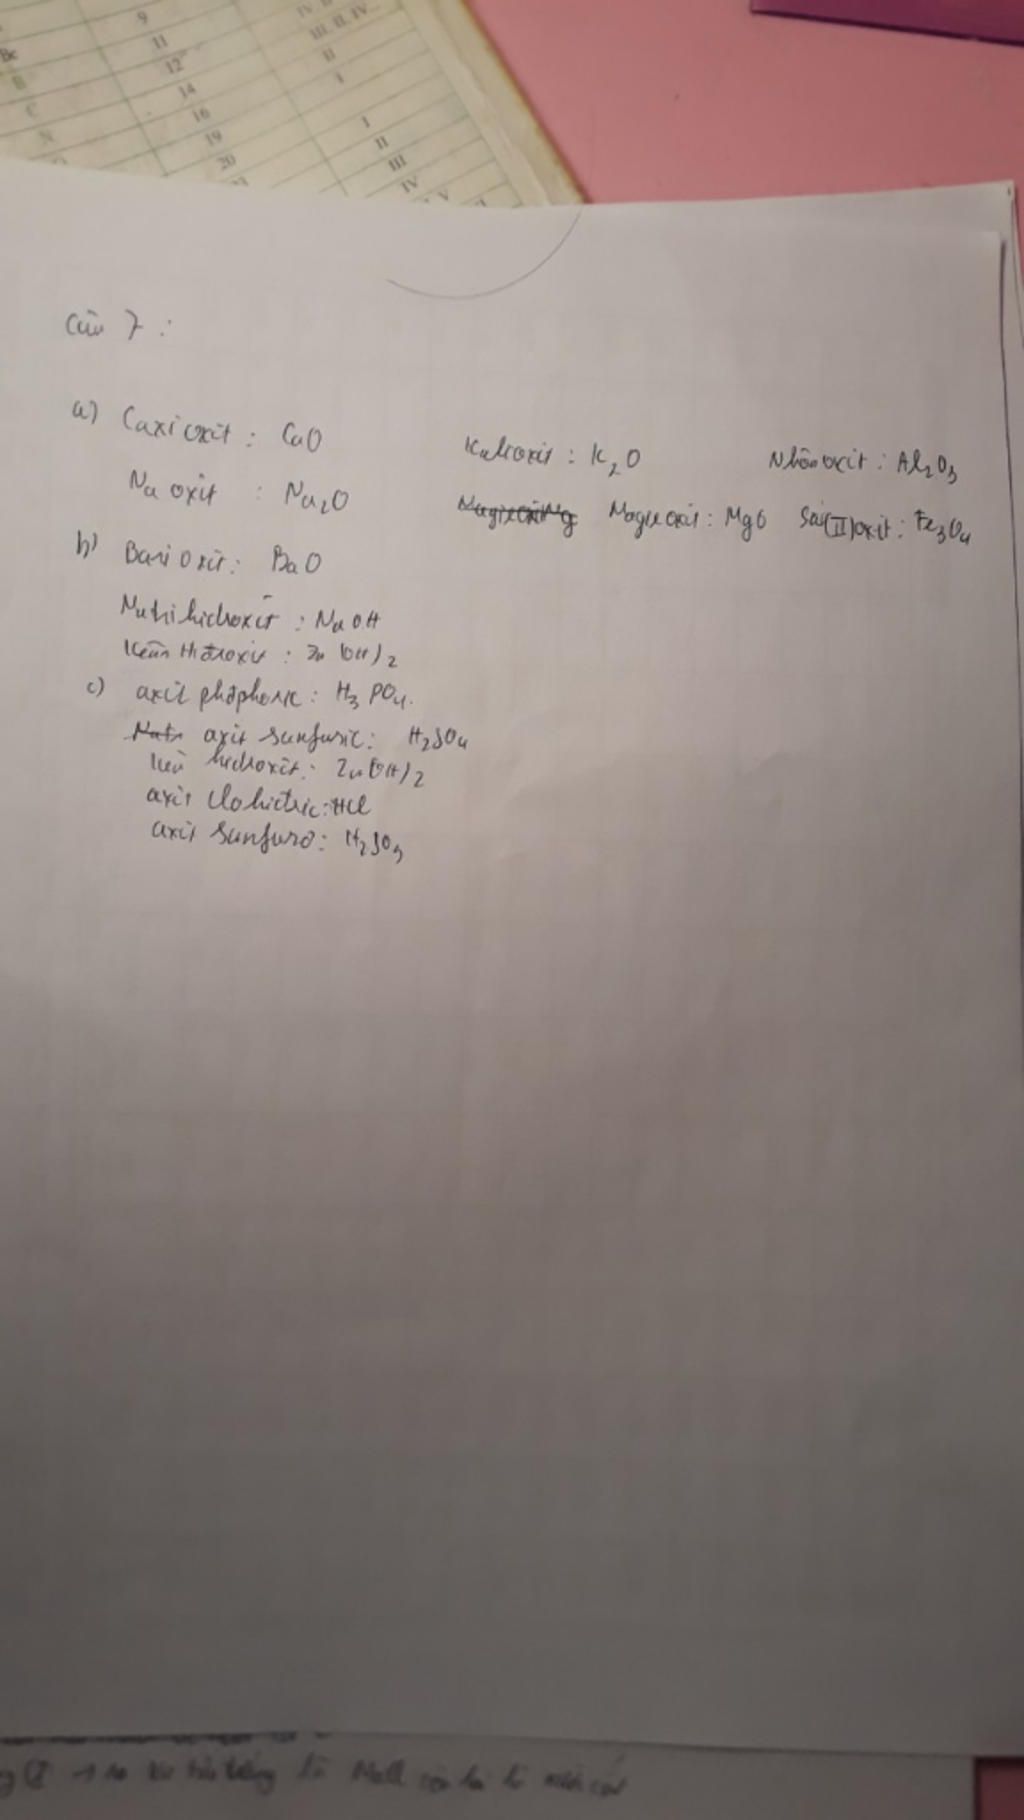 9
11
12
14
16
19
20
III, II, IV...
II
I
I
II
III
IV
V
Be
B
C
N
Câu 7 :
a) Caxi oxit : CaO Kali oxit : K2O Nhôm oxit : Al2O3
Na oxit : Na2O Magie oxit : MgO Sắt(II) oxit : Fe3O4
b) Bari oxit : BaO
Natri hidroxit : NaOH
Kẽm Hidroxit : Zn(OH)2
c) axit photphoric : H3PO4.
axit sunfuric : H2SO4
kẽm hidroxit : Zn(OH)2
axit Clohidric : HCl
axit Sunfuro : H2SO3